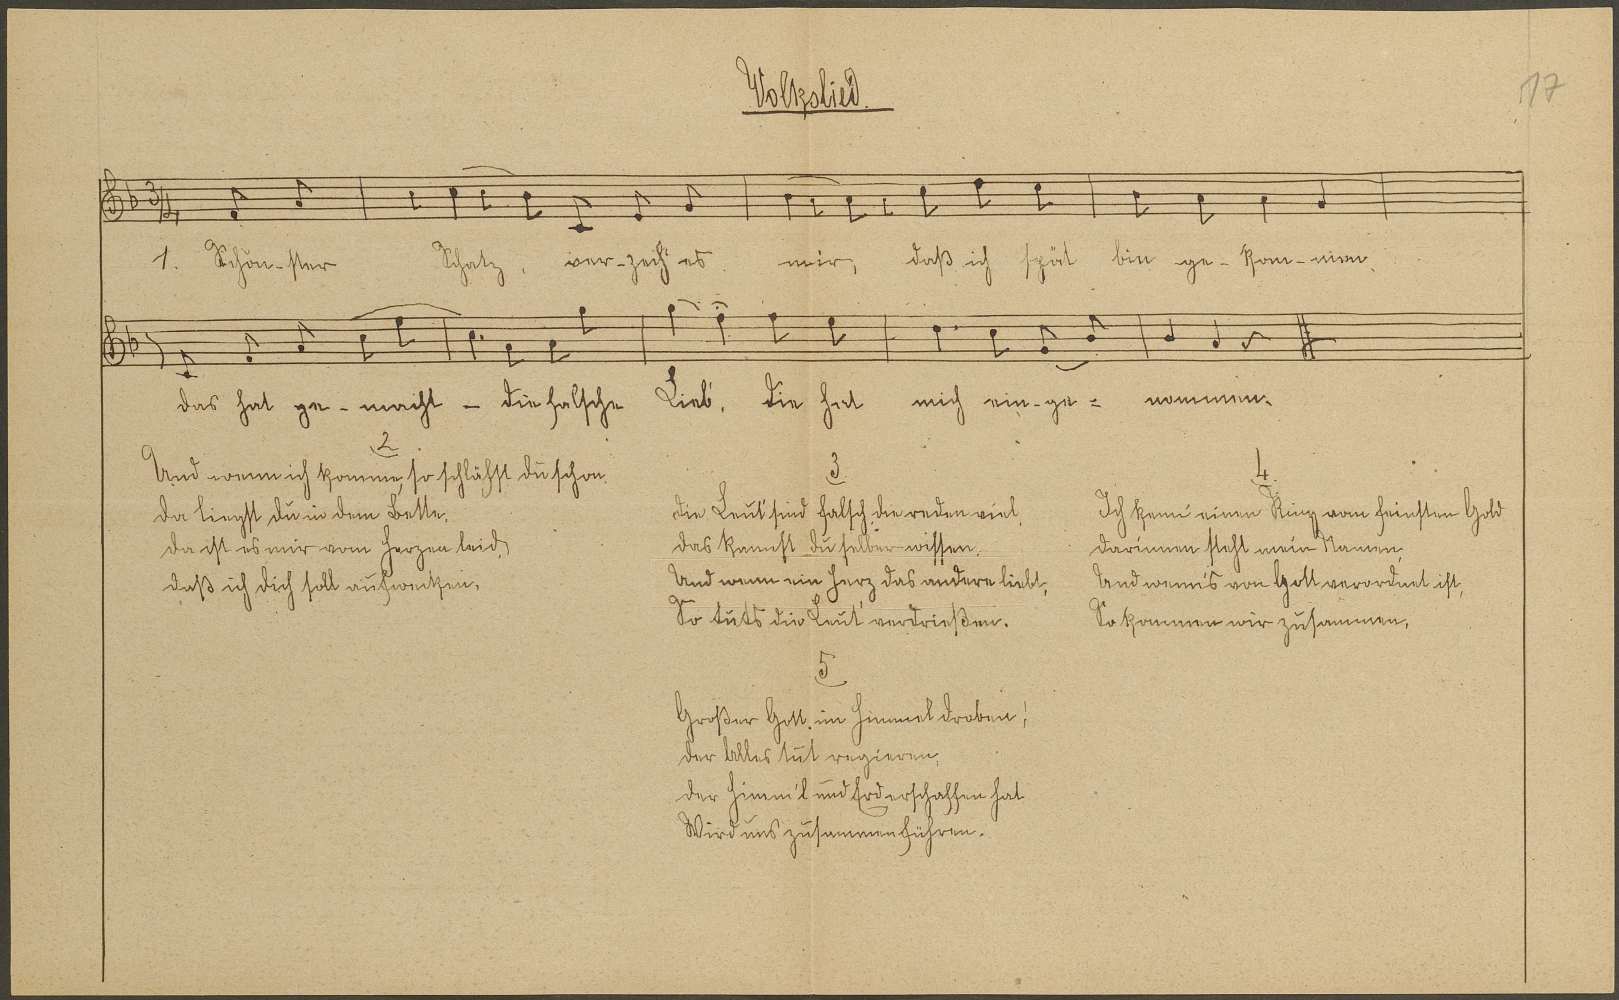 Volkslied.
17
3/4
1. Schön-ster Schatz, ver-zeih' es mir, daß ich spät bin ge-kom-men,
das hat ge-macht - die falsche Lieb', die hat mich ein-ge= nommen.
2
Und wenn ich komme, so schläfst du schon
da liegst du in dem Bette,
da ist es mir vom Herzen leid,
daß ich dich soll aufwecken.
3
die Leut' sind falsch, die reden viel,
das kannst du selber wissen,
Und wenn ein Herz das andere liebt,
So tuts die Leut' verdrießen.
4.
Ich kenn' einen Ring vom feinsten Gold
darinnen steht mein Namen,
Und wenn's von Gott verordnet ist,
So kommen wir zusammen.
5
Großer Gott, im Himmel droben!
der Alles tut regieren,
der Himm'l und Erd erschaffen hat
Wird uns zusammenführen.